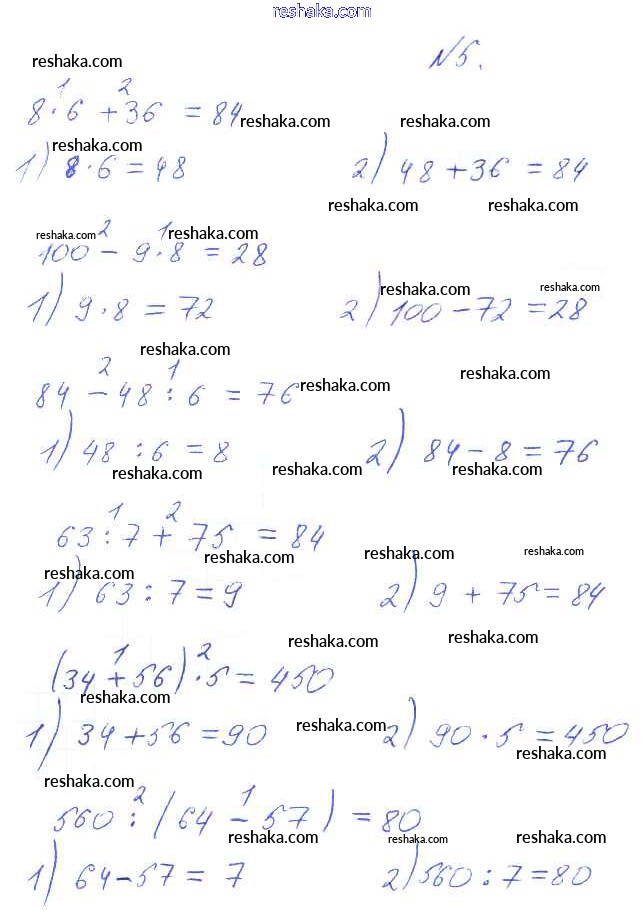 reshaka.com
reshaka.com
№5.
1 2
8·6 + 36 = 84
reshaka.com reshaka.com
reshaka.com
1) 8·6 = 48 2) 48 + 36 = 84
reshaka.com reshaka.com
reshaka.com 2 1 reshaka.com
100 - 9·8 = 28
reshaka.com reshaka.com
1) 9·8 = 72 2) 100 - 72 = 28
reshaka.com
2 1 reshaka.com
84 - 48 : 6 = 76 reshaka.com
1) 48 : 6 = 8 2) 84 - 8 = 76
reshaka.com reshaka.com reshaka.com
1 2
63 : 7 + 75 = 84
reshaka.com reshaka.com reshaka.com
reshaka.com
1) 63 : 7 = 9 2) 9 + 75 = 84
reshaka.com reshaka.com
1 2
(34 + 56)·5 = 450
reshaka.com
1) 34 + 56 = 90 reshaka.com 2) 90·5 = 450
reshaka.com
reshaka.com
2 1
560 : (64 - 57) = 80
reshaka.com reshaka.com reshaka.com
1) 64 - 57 = 7 2) 560 : 7 = 80